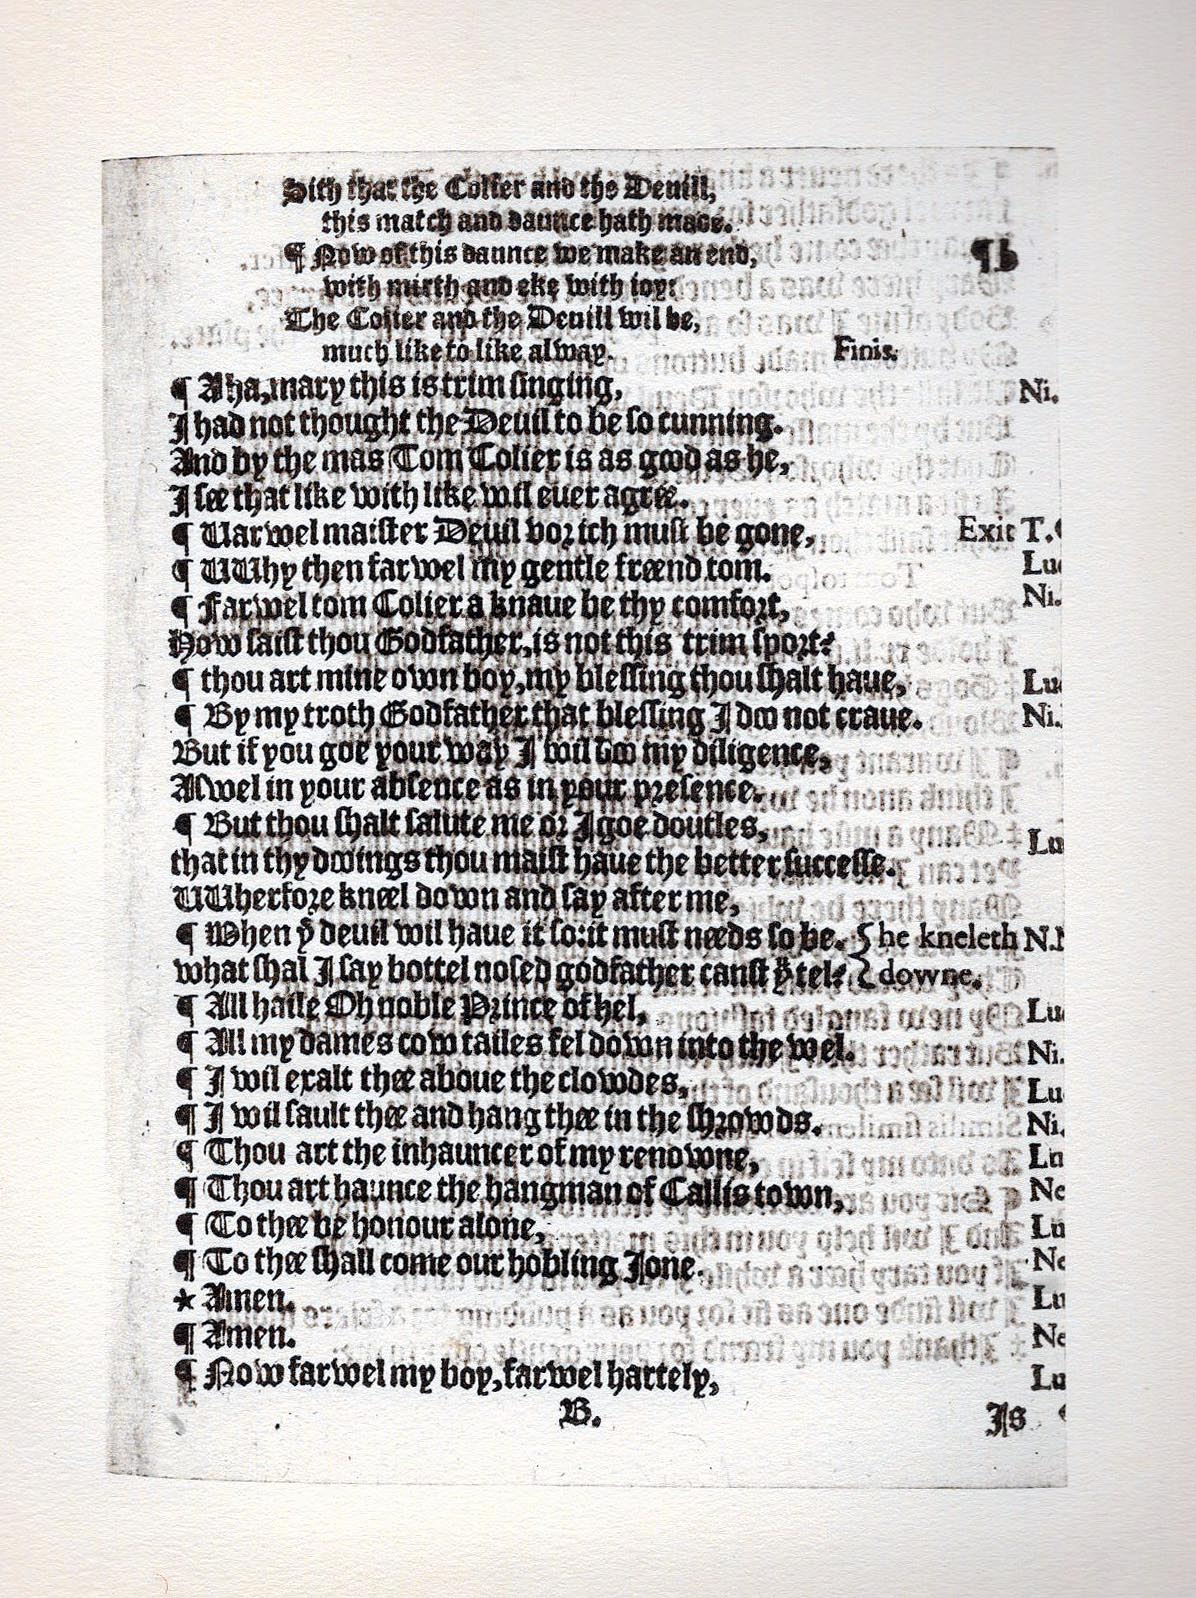 Sith that the Colier and the Deuill,
this match and daunce hath made.
¶ Now of this daunce we make an end,
with mirth and eke with ioy:
The Colier and the Deuill wil be,
much like to like alway. Finis.
¶ Aha, mary this is trim singing, Ni.
I had not thought the Deuil to be so cunning.
And by the mas Tom Colier is as good as he,
I see that like with like wil euer agree.
¶ Uarwel maister Deuil vor ich must be gone, Exit T.C
¶ UUhy then farwel my gentle freend tom. Lu
¶ Farwel tom Colier a knaue be thy comfort, Ni.
How saist thou Godfather, is not this trim sport?
¶ thou art mine own boy, my blessing thou shalt haue, Lu
¶ By my troth Godfather that blessing I doo not craue. Ni.
But if you goe your way I wil doo my diligence,
Aswel in your absence as in your presence.
¶ But thou shalt salute me or I goe doutles, Lu
that in thy dooings thou maist haue the better successe.
UUherfore kneel down and say after me,
¶ When yͤ deuil wil haue it so: it must needs so be. he kneleth N.N
what shal I say bottel nosed godfather canst yͧ tel? downe.
¶ All haile Oh noble Prince of hel, Lu
¶ All my dames cow tailes fel down into the wel. Ni.
¶ I wil exalt thee aboue the clowdes, Lu
¶ I wil sault thee and hang thee in the shrowds. Ni.
¶ Thou art the inhauncer of my renowne, Lu
¶ Thou art haunce the hangman of Callis town, Ne
¶ To thee be honour alone, Lu
¶ To thee shall come our hobling Jone. Ne
* Amen. Lu
¶ Amen. Ne
¶ Now farwel my boy, farwel hartely, Lu
B. Is